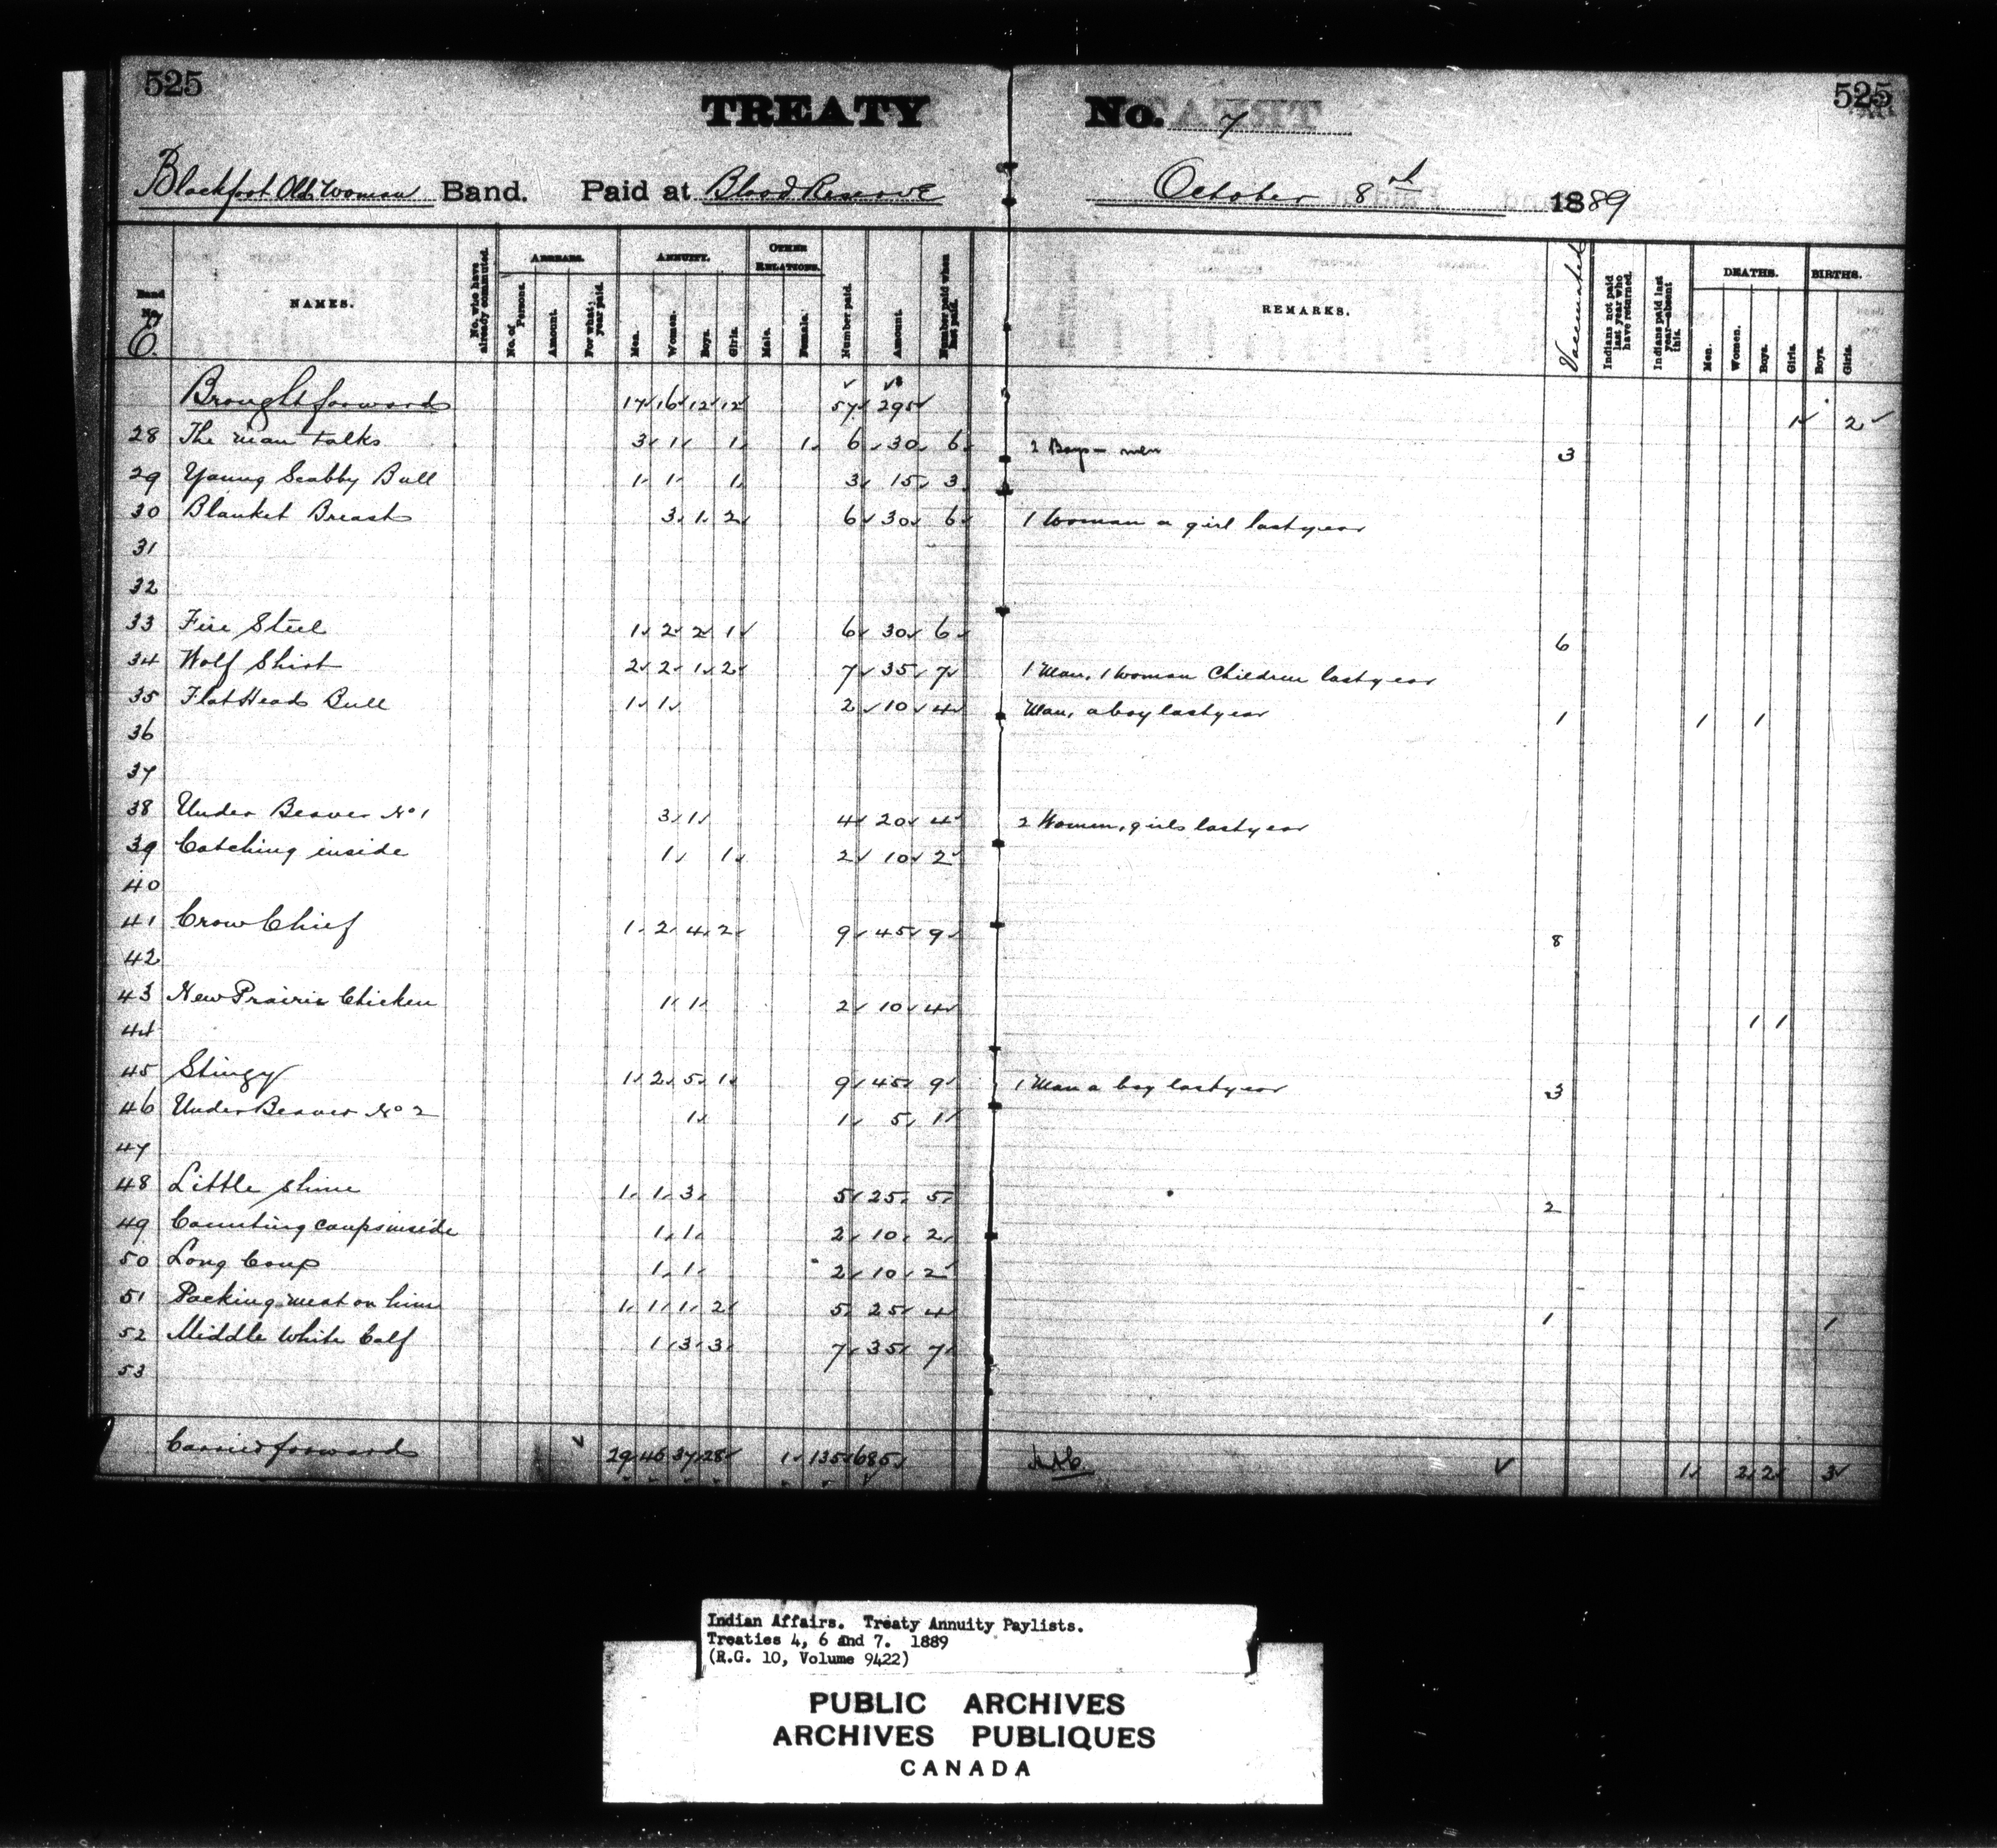 525 525
TREATY No. 7
Blackfoot Old Woman Band. Paid at Blood Reserve October 8th 1889
Band No. E. NAMES. No. who have already commuted. ARREARS. No. of Persons. Amount. For what year paid. ANNUITY. Men. Women. Boys. Girls. OTHER RELATIONS. Male. Female. Number paid. Amount. Number paid when last paid. REMARKS. Vaccinated Indians not paid last year who have returned. Indians paid last year—absent this. DEATHS. Men. Women. Boys. Girls. BIRTHS. Boys. Girls.
Brought forward 17 16 12 12 57 295 1 2
28 The man talks 3 1 1 1 6 30 6 2 Boys - men 3
29 Young Scabby Bull 1 1 1 3 15 3
30 Blanket Breast 3 1 2 6 30 6 1 Woman a girl last year
31
32
33 Fire Steel 1 2 2 1 6 30 6 6
34 Wolf Shirt 2 2 1 2 7 35 7 1 Man, 1 Woman Children last year
35 Flat Head Bull 1 1 2 10 4 Man, a boy last year 1 1 1
36
37
38 Under Beaver No 1 3 1 4 20 4 2 Women, girls last year
39 Catching inside 1 1 2 10 2
40
41 Crow Chief 1 2 4 2 9 45 9 8
42
43 New Prairie Chicken 1 1 2 10 4 1 1
44
45 Stingy 1 2 5 1 9 45 9 1 Man a boy last year 3
46 Under Beaver No 2 1 1 5 1
47
48 Little Shine 1 1 3 5 25 5 2
49 Counting coups inside 1 1 2 10 2
50 Long Coup 1 1 2 10 2
51 Packing meat on him 1 1 1 2 5 25 4 1 1
52 Middle White Calf 1 3 3 7 35 7
53
Carried forward 29 46 37 28 1 135 685 1 2 2 3
Indian Affairs. Treaty Annuity Paylists.
Treaties 4, 6 and 7. 1889
(R.G. 10, Volume 9422)
PUBLIC ARCHIVES
ARCHIVES PUBLIQUES
CANADA